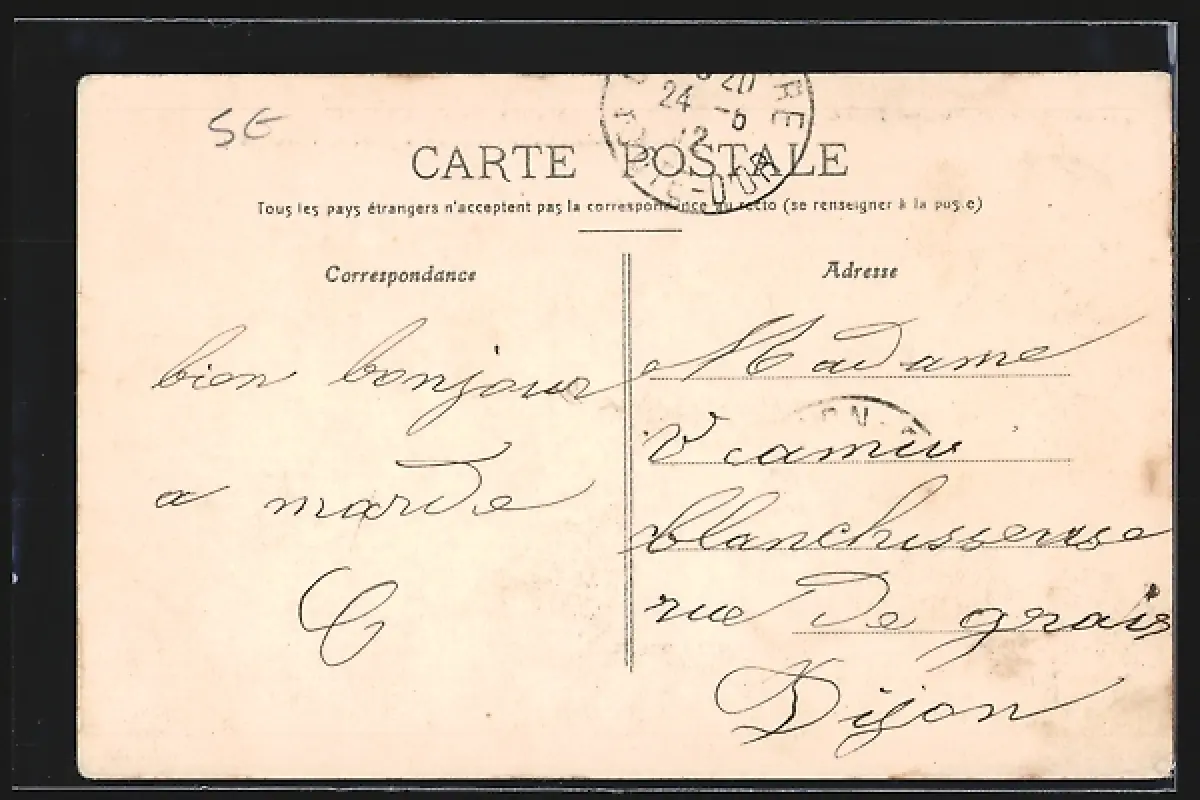 SE
20
24 -6
12
RE
COTE-D'OR
CARTE POSTALE
Tous les pays étrangers n'acceptent pas la correspondance au recto (se renseigner à la poste)
Correspondance
Adresse
bien bonjour
a marde
C
Madame
V camus
blanchisseuse
rue de grais
Dijon